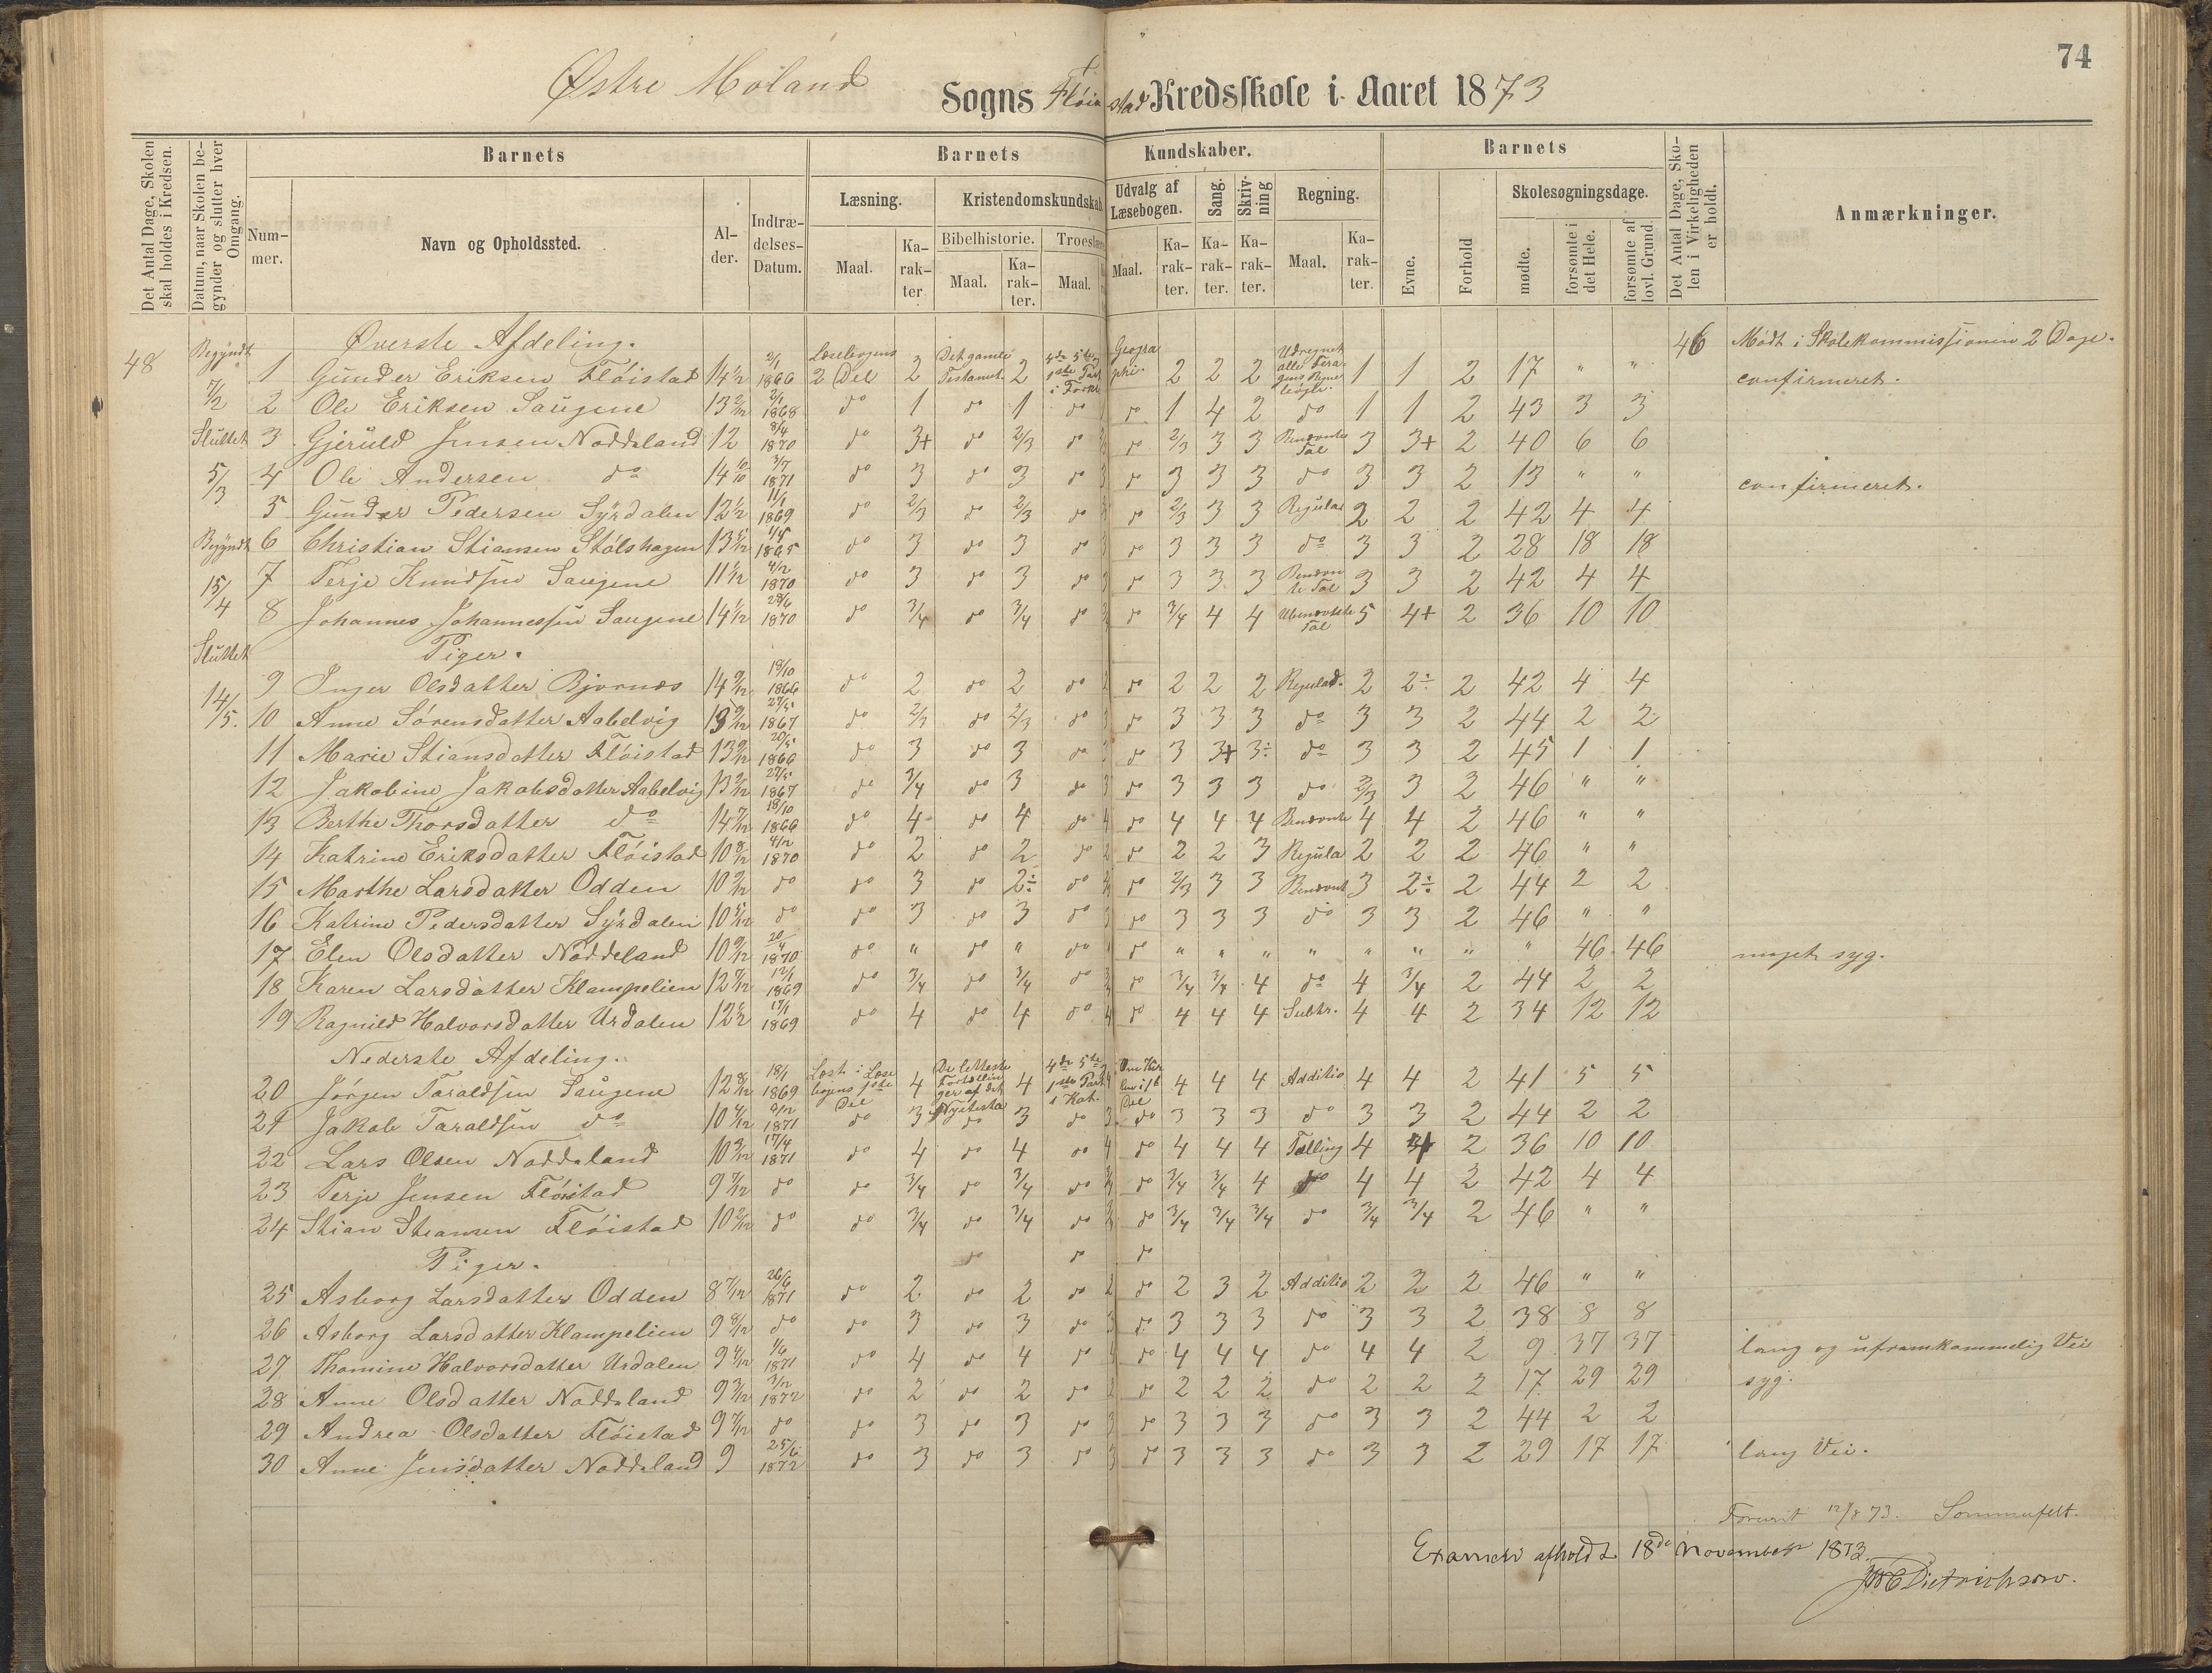 74
Østre Moland Sogns Fløistad Kredsskole i Aaret 1873
Det Antal Dage, Skolen skal holdes i Kredsen.
Datum, naar Skolen begynder og slutter hver Omgang.
Barnets
Nummer.
Navn og Opholdssted.
Alder.
Indtrædelses-Datum.
Barnets Kundskaber.
Læsning.
Maal.
Karakter
Kristendomskundskab
Bibelhistorie.
Maal.
Karakter.
Troeslære
Maal.
Udvalg af Læsebogen.
Maal.
Karakter.
Sang.
Karakter.
Skrivning
Karakter.
Regning.
Maal.
Karakter.
Barnets
Evne.
Forhold
Skolesøgningsdage.
mødte.
forsømte i det Hele.
forsømte af lovl. Grund.
Det Antal Dage, Skolen i Virkeligheden er holdt.
Anmærkninger.
48
Begyndt 7/2 Sluttet 5/3 Begyndt 15/4 Sluttet 14/5.
Øverste Afdeling. 46 Mødt i Skolekommissionen 2 Dage.
1 Gunder Eriksen Fløistad 14 1/2 2/1 1866 Læsebogens 2 Del 2 Det gamle Testament 2 4de 5te 1ste Part i Forkl. Geographi. 2 2 2 Udregnet alle 1 1 2 17 " " confirmeret.
2 Ole Eriksen Saugene 13 2/12 2/1 1868 do 1 do 1 do do 1 4 2 do 1 1 2 43 3 3
3 Gjeruld Jensen Noddeland 12 8/4 1870 do 3+ do 2/3 do do 2/3 3 3 Benævnte Tal 3 3+ 2 40 6 6
4 Ole Andersen do 14 3/7 1871 do 3 do 3 do 3 do 3 3 3 do 3 3 2 13 " " confirmeret.
5 Gunder Pedersen Syrdalen 12 1/2 11/1 1869 do 2/3 do 2/3 do do 2/3 3 3 Regula 2 2 2 42 4 4
6 Christian Stiansen Stølshagen 13 1865 do 3 do 3 do 3 do 3 3 3 do 3 3 2 28 18 18
7 Terje Knudsen Saugene 11 1/12 4/12 1870 do 3 do 3 do 3 do 3 3 3 Benævnte Tal 3 3 2 42 4 4
8 Johannes Johannessen Saugene 14 1/12 28/6 1870 do 3/4 do 3/4 do do 3/4 4 4 Ubenævnte Tal 5 4+ 2 36 10 10
Piger.
9 Inger Olsdatter Bjornæs 14 9/12 19/10 1866 do 2 do 2 do 2 do 2 2 2 Regulad. 2 2÷ 2 42 4 4
10 Anne Sørensdatter Aabelvig 13 9/12 27/5 1867 do 2/3 do 2/3 do 3 do 3 3 3 do 3 3 2 44 2 2
11 Marie Stiansdatter Fløistad 13 9/12 20/5 1866 do 3 do 3 do 3 do 3 3+ 3÷ do 3 3 2 45 1 1
12 Jakobine Jakobsdatter Aabelvig 13 27/5 1867 do 3/4 do 3 do 3 do 3 3 3 do 2/3 3 2 46 " "
13 Berthe Thorsdatter do 14 7/12 18/10 1866 do 4 do 4 do 4 do 4 4 4 Benævnte 4 4 2 46 " "
14 Katrine Eriksdatter Fløistad 10 8/12 4/12 1870 do 2 do 2 do 2 do 2 2 3 Regula 2 2 2 46 " "
15 Marthe Larsdatter Odden 10 9/12 do do 3 do 2÷ do do 2/3 3 3 Benævnt 3 2÷ 2 44 2 2
16 Katrine Pedersdatter Syrdalen 10 5/12 do do 3 do 3 do 3 do 3 3 3 do 3 3 2 46 " "
17 Elen Olsdatter Noddeland 10 9/12 20/4 1870 do " do " do " do " " " " " " " " 46 46 meget syg.
18 Karen Larsdatter Klampelien 12 7/12 12/1 1869 do 3/4 do 3/4 do do 3/4 3/4 4 do 4 3/4 2 44 2 2
19 Ragnild Halvorsdatter Urdalen 12 17/1 1869 do 4 do 4 do 4 do 4 4 4 Subtr. 4 4 2 34 12 12
Nederste Afdeling.
20 Jørgen Taraldsen Saugene 12 8/12 18/1 1869 Læst i Læsebogens 1ste Del 4 De letteste Fortællinger af det Nyeste 4 4de 5te 1ste Part i Kat. 4 4 4 4 Additio 4 4 2 41 5 5
21 Jakob Taraldsen do 10 4/12 8/12 1871 do 3 do 3 do 3 do 3 3 3 do 3 3 2 44 2 2
22 Lars Olsen Noddeland 10 17/4 1871 do 4 do 4 do 4 do 4 4 4 Tælling 4 2 36 10 10
23 Terje Jensen Fløistad 9 7/12 do do 3/4 do 3/4 do do 3/4 3/4 4 do 4 4 2 42 4 4
24 Stian Steansen Fløistad 10 2/12 do do 3/4 do 3/4 do do 3/4 3/4 3/4 do 3/4 3/4 2 46 " "
Piger. do do do
25 Asborg Larsdatter Odden 8 7/12 26/6 1871 do 2 do 2 do 2 do 2 3 2 Additio 2 2 2 46 " "
26 Asborg Larsdatter Klampelien 9 8/12 do do 3 do 3 do 3 do 3 3 3 do 3 3 2 38 8 8
27 Thomine Halvorsdatter Urdalen 9 4/12 1/6 1871 do 4 do 4 do 4 do 4 4 4 do 4 4 2 9 37 37 lang og uframkommelig Vei
28 Anne Olsdatter Noddeland 9 3/12 3/12 1872 do 2 do 2 do 2 do 2 2 2 do 2 2 2 17 29 29 syg.
29 Andrea Olsdatter Fløistad 9 7/12 do do 3 do 3 do 3 do 3 3 3 do 3 3 2 44 2 2
30 Anne Jensdatter Noddeland 9 25/6 1872 do 3 do 3 do 3 do 3 3 3 do 3 3 2 29 17 17 lang Vei.
Forevist 12/8 73. Sommerfelt.
Examen afholdt 18de November 1873.
Dietrichson.